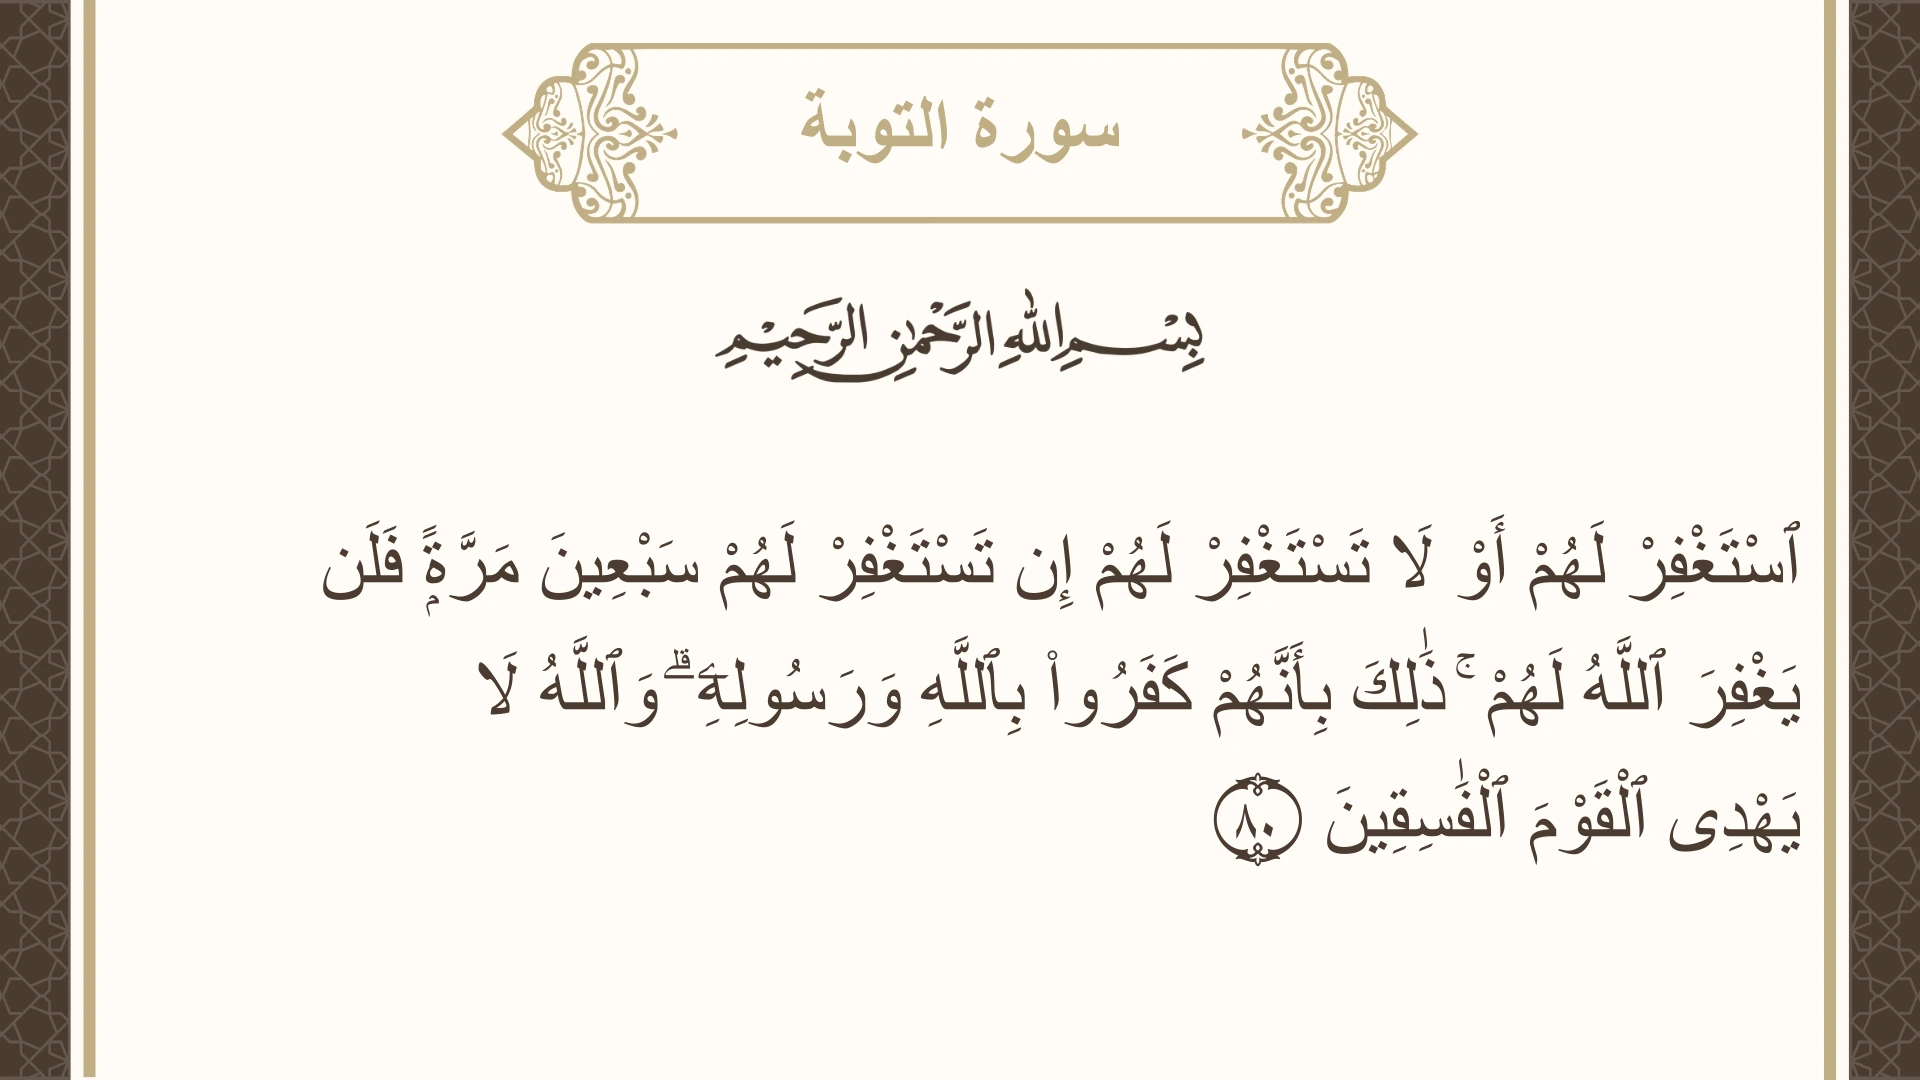 سورة التوبة
بِسْمِ اللهِ الرَّحْمٰنِ الرَّحِيْمِ
ٱسْتَغْفِرْ لَهُمْ أَوْ لَا تَسْتَغْفِرْ لَهُمْ إِن تَسْتَغْفِرْ لَهُمْ سَبْعِينَ مَرَّةًۭ فَلَن
يَغْفِرَ ٱللَّهُ لَهُمْ ۚ ذَٰلِكَ بِأَنَّهُمْ كَفَرُوا۟ بِٱللَّهِ وَرَسُولِهِۦ ۗ وَٱللَّهُ لَا
يَهْدِى ٱلْقَوْمَ ٱلْفَـٰسِقِينَ ٨٠